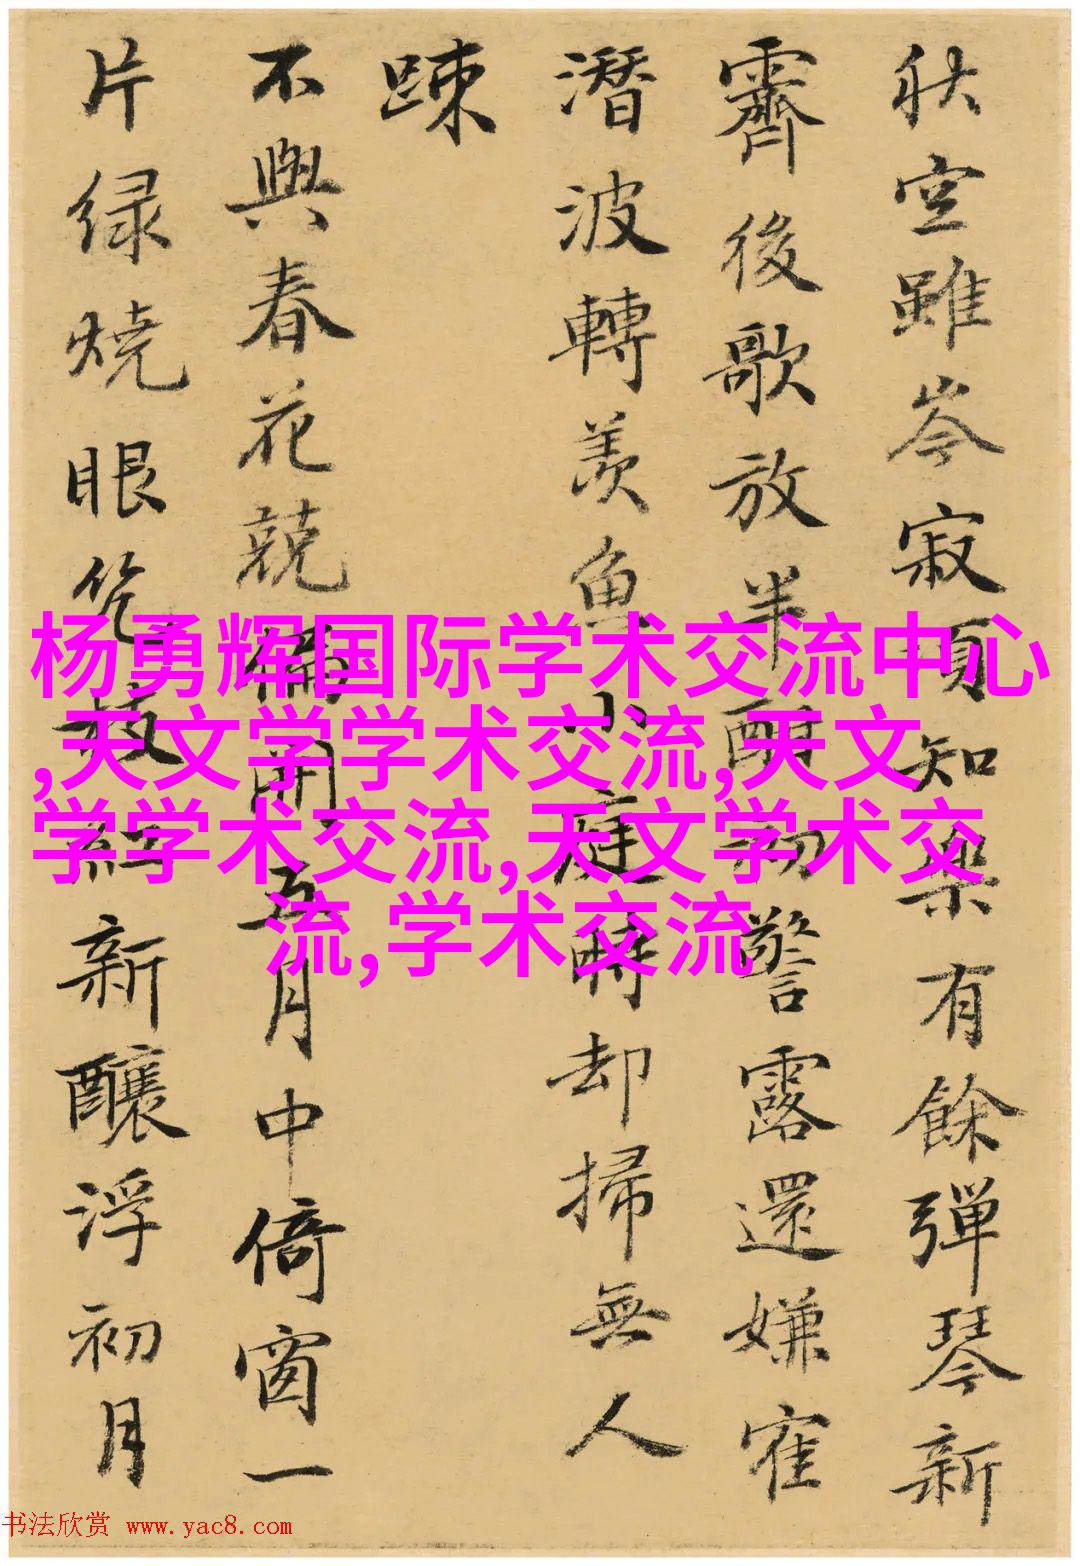 秋空雖岑寂須知樂有餘彈琴新
霽後歌放半酣初警露還嫌寉
潛波轉羨魚小庭時却掃無人
踈
不與春花兢開五月中倚窗一
片緑燒眼枝紅新釀浮初月
杨勇辉国际学术交流中心
,天文学学术交流,天文
学学术交流,天文学术交
流,学术交流
书法欣赏 www.yac8.com